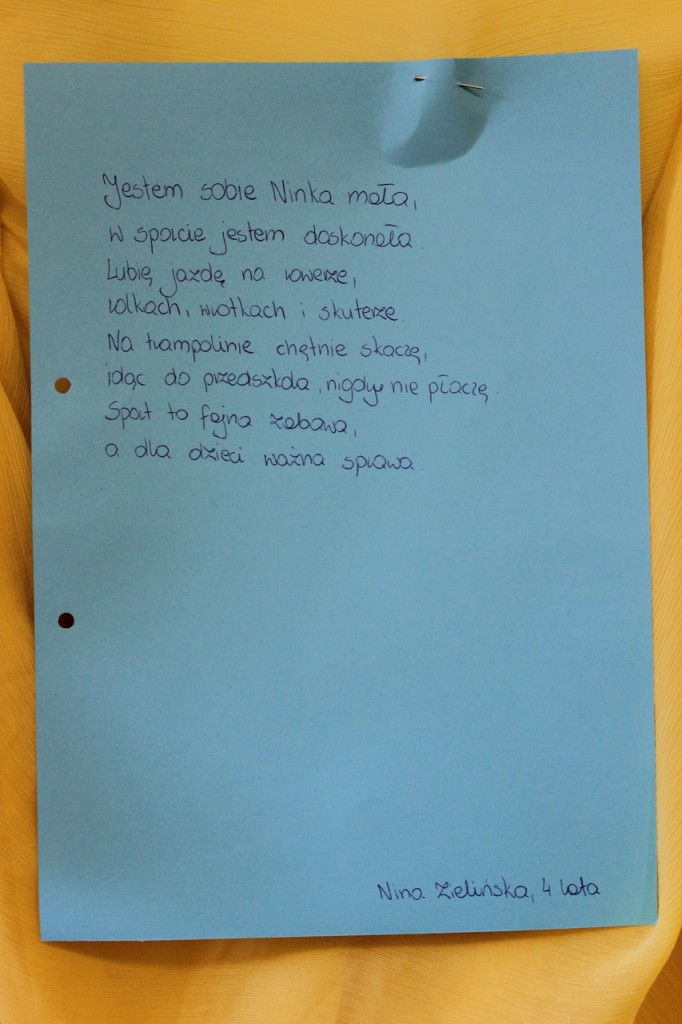 Jestem sobie Ninka mała,
w sporcie jestem doskonała.
Lubię jazdę na rowerze,
rolkach, wrotkach i skuterze.
Na trampolinie chętnie skaczę,
idąc do przedszkola, nigdy nie płaczę.
Sport to fajna zabawa,
a dla dzieci ważna sprawa.
Nina Zielińska, 4 lata